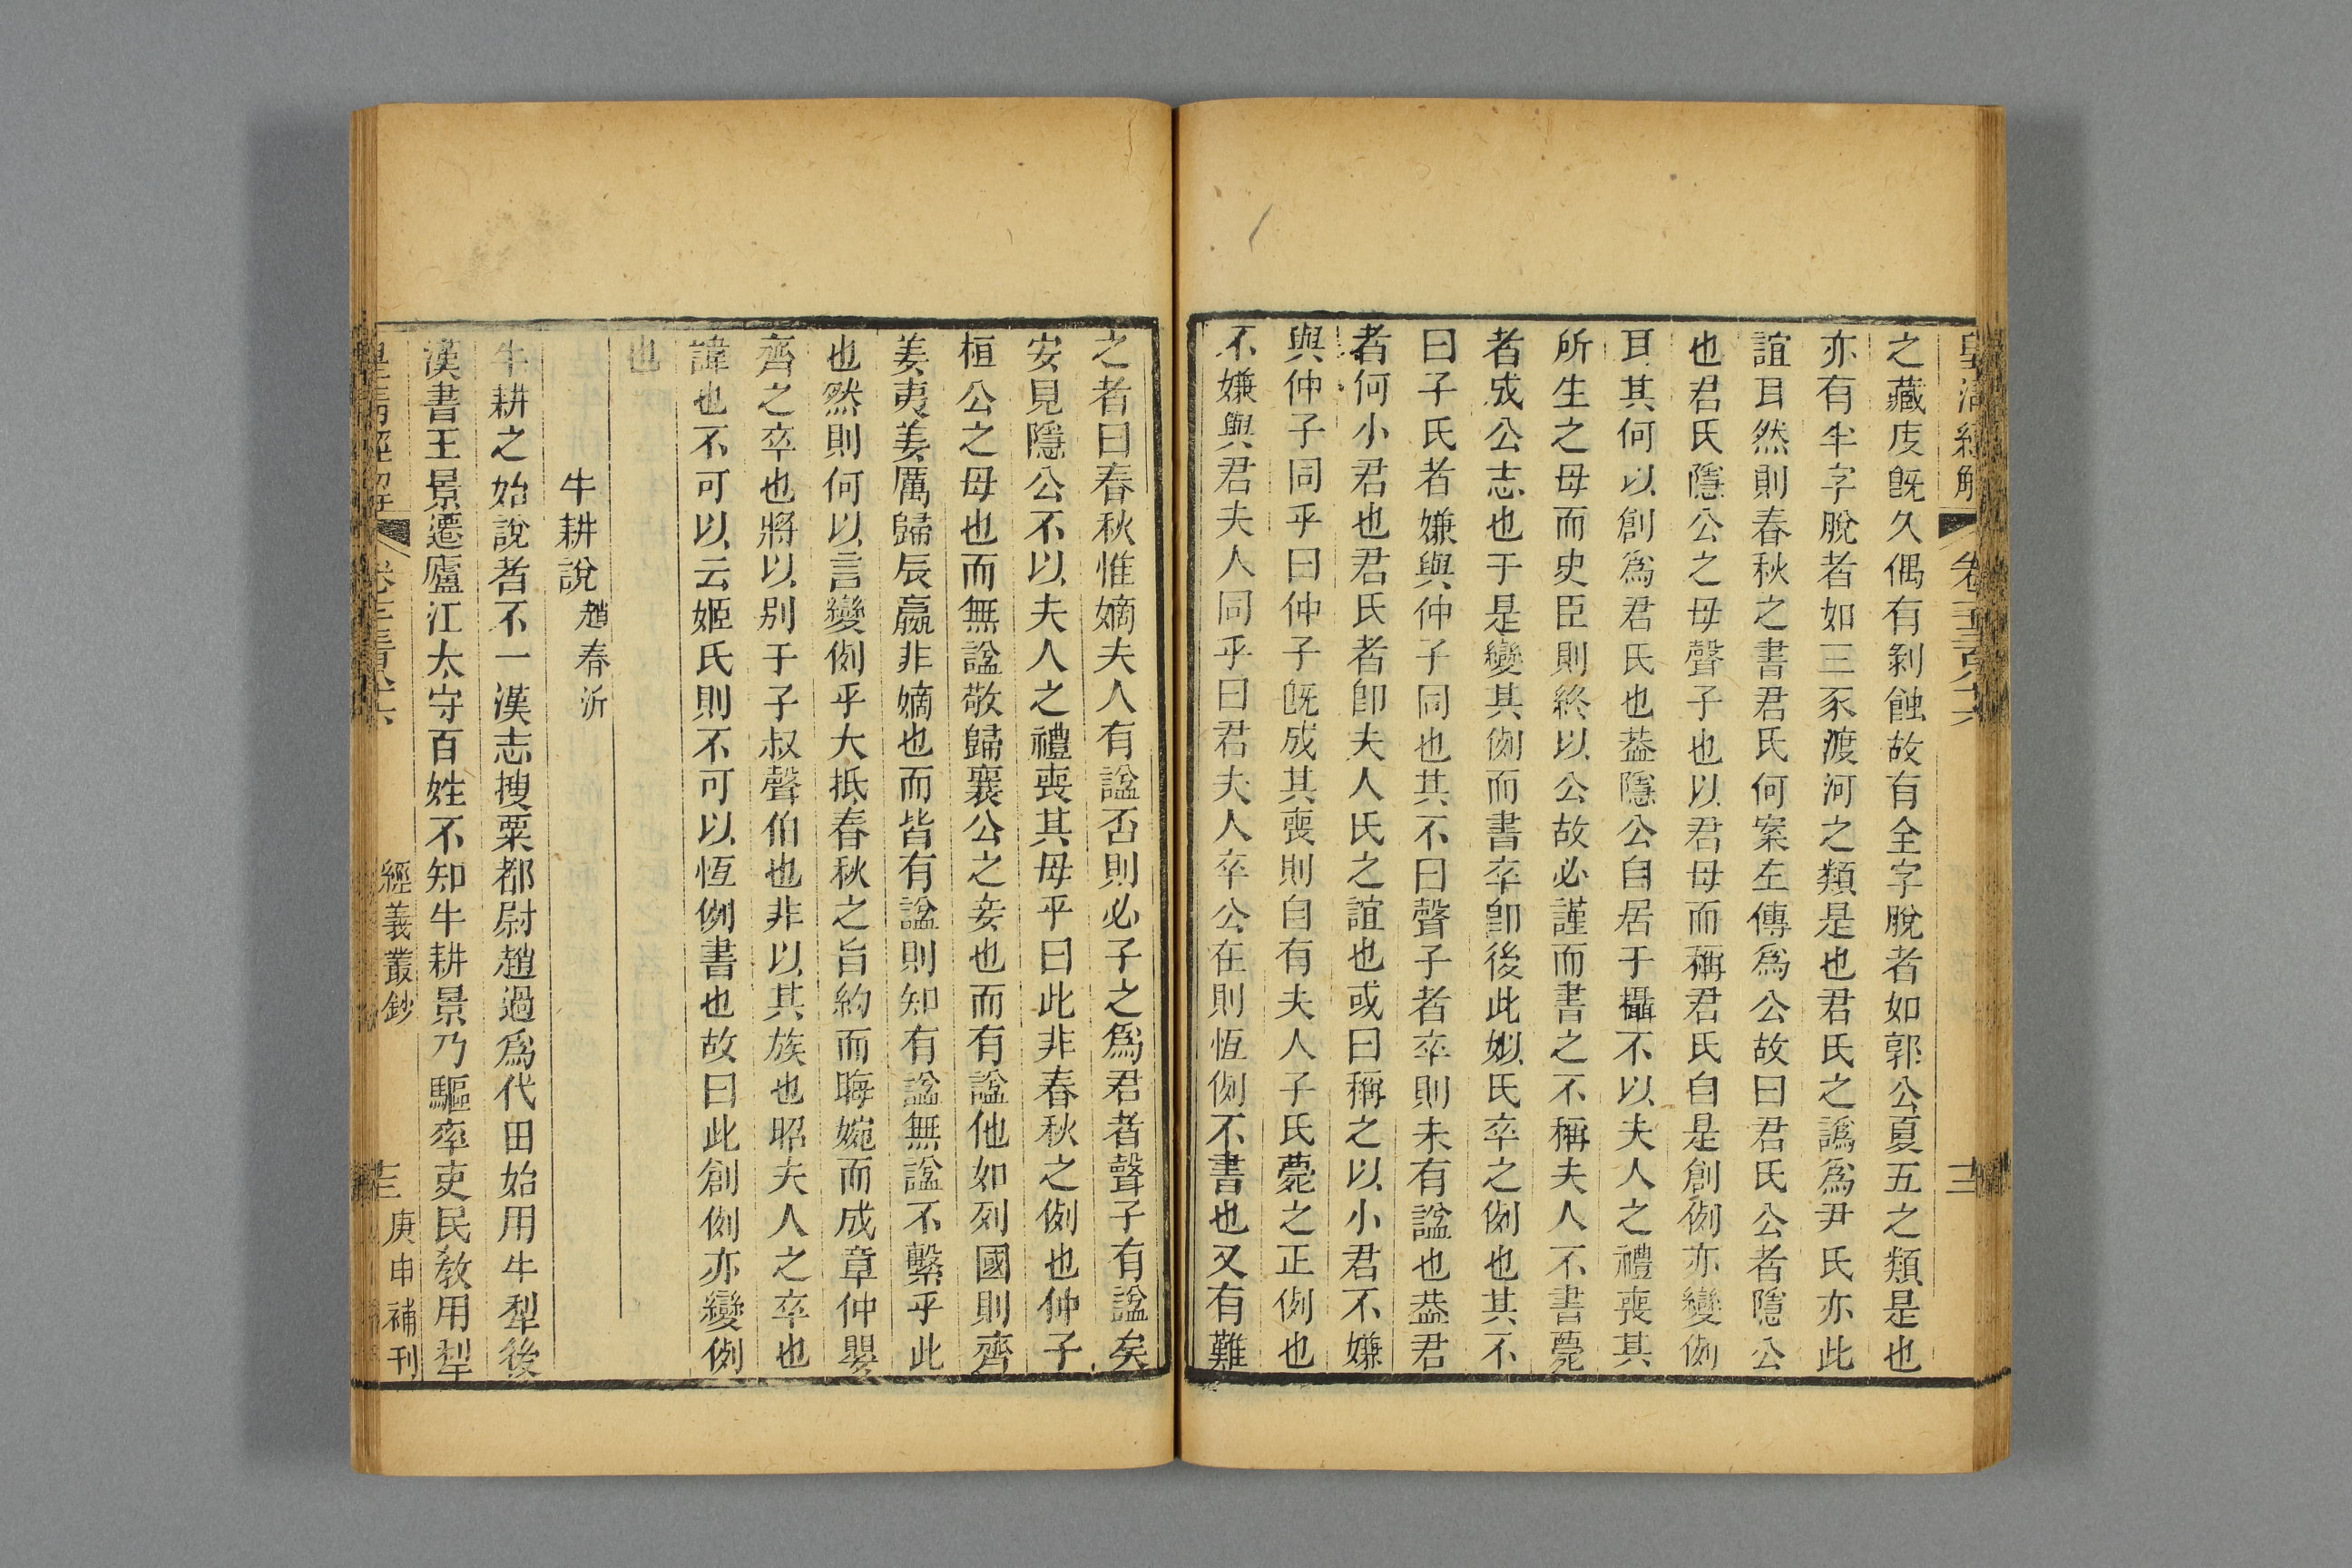 皇清經解
之藏庋旣久偶有剝蝕故有全字脫者如郭公夏五之類是也
亦有半字脫者如三豕渡河之類是也君氏之譌爲尹氏亦此
誼耳然則春秋之書君氏何案左傳爲公故曰君氏公者隱公
也君氏隱公之母聲子也以君母而稱君氏自是創例亦變例
耳其何以創爲君氏也葢隱公自居于攝不以夫人之禮喪其
所生之母而史臣則終以公故必謹而書之不稱夫人不書薨
者成公志也于是變其例而書卒卽後此姒氏卒之例也其不
曰子氏者嫌與仲子同也其不曰聲子者卒則未有諡也葢君
者何小君也君氏者卽夫人氏之誼也或曰稱之以小君不嫌
與仲子同乎曰仲子旣成其喪則自有夫人子氏薨之正例也
不嫌與君夫人同乎曰君夫人卒公在則恆例不書也又有難
之者曰春秋惟嫡夫人有諡否則必子之爲君者聲子有諡矣
安見隱公不以夫人之禮喪其母乎曰此非春秋之例也仲子
桓公之母也而無諡敬歸襄公之妾也而有諡他如列國則齊
姜夷姜厲歸辰嬴非嫡也而皆有諡則知有諡無諡不繫乎此
也然則何以言變例乎大抵春秋之旨約而晦婉而成章仲嬰
齊之卒也將以別于子叔聲伯也非以其族也昭夫人之卒也
諱也不可以云姬氏則不可以恆例書也故曰此創例亦變例
也
牛耕說 趙春沂
牛耕之始說者不一漢志搜粟都尉趙過爲代田始用牛犁後
漢書王景遷廬江太守百姓不知牛耕景乃驅率吏民敎用犁
皇清經解
經義叢鈔
庚申補刊